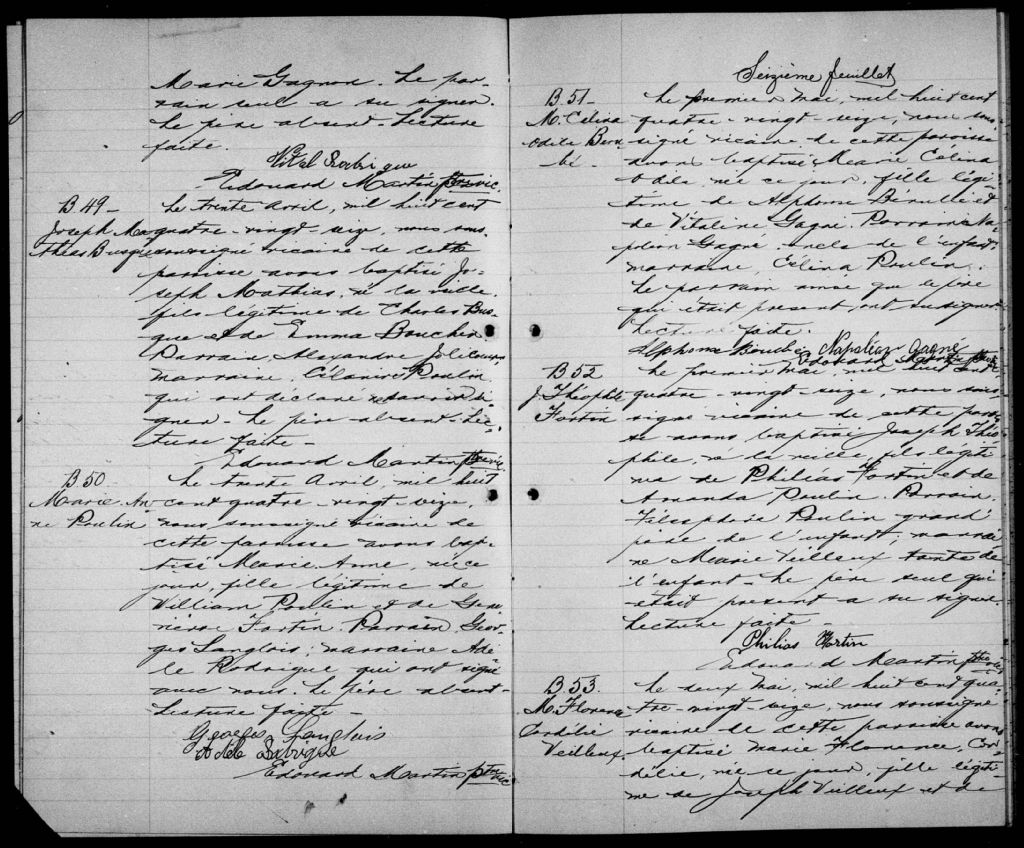 Marie Gagnon. Le par-
rain seul a su signer.
Le père absent. Lecture
faite.
Vital Rodrigue
Edouard Martin ptre vic.
B 49-
Joseph Ma
thias Busque
Le trente Avril, mil huit cent
quatre-vingt-seize, nous sous
signé vicaire de cette
paroisse avons baptisé Jo-
seph Mathias, né la veille,
fils légitime de Charles Bus
que et de Emma Boucher.
Parrain, Alexandre Jolicoeur
marraine, Célanire Poulin
qui ont déclaré ne savoir si-
gner. Le père absent. Lec-
ture faite-
Edouard Martin ptre vic
B 50
Marie An-
ne Poulin
Le trente Avril, mil huit
cent quatre-vingt-seize,
nous soussigné vicaire de
cette paroisse avons bap-
tisé Marie Anne, née ce
jour, fille légitime de
William Poulin et de Gene
viève Fortin. Parrain Geor-
ges Langlois; marraine Adè
le Rodrigue qui ont signé
avec nous. Le père absent-
Lecture faite-
Georges Langlois
Adèle Rodrigue
Edouard Martin ptre vic
Seizième feuillet
B 51-
M. Célina
Odile
Le premier Mai, mil huit cent
quatre-vingt-seize, nous sous
signé vicaire de cette paroisse
avons baptisé Marie Célina
Odile, née ce jour, fille légi-
time de Alphonse et
de Vitaline Gagné. Parrain Na-
poléon Gagné oncle de l'enfant,
marraine, Célina Poulin.
Le parrain ainsi que le père
qui était présent, ont su signer
Lecture faite.
Alphonse Napoléon Gagné
Edouard Martin ptre vic
B 52
J. Théophile
Fortin
Le premier Mai, mil huit cent
quatre-vingt-seize, nous sous
signé vicaire de cette parois
se avons baptisé Joseph Théo
phile, né la veille, fils légiti
me de Philias Fortin et de
Amanda Poulin. Parrain,
Télesphore Poulin grand
père de l'enfant; marrai
ne Marie Veilleux tante de
l'enfant- Le père seul qui
était présent a su signer.
Lecture faite-
Philias Fortin
Edouard Martin ptre vic
B 53.
M. Florence
Cordélie
Veilleux.
Le deux Mai, mil huit cent qua
tre-vingt-seize, nous soussigné
vicaire de cette paroisse avons
baptisé Marie Florence, Cor
délie, née ce jour, fille légiti-
me de Joseph Veilleux et de